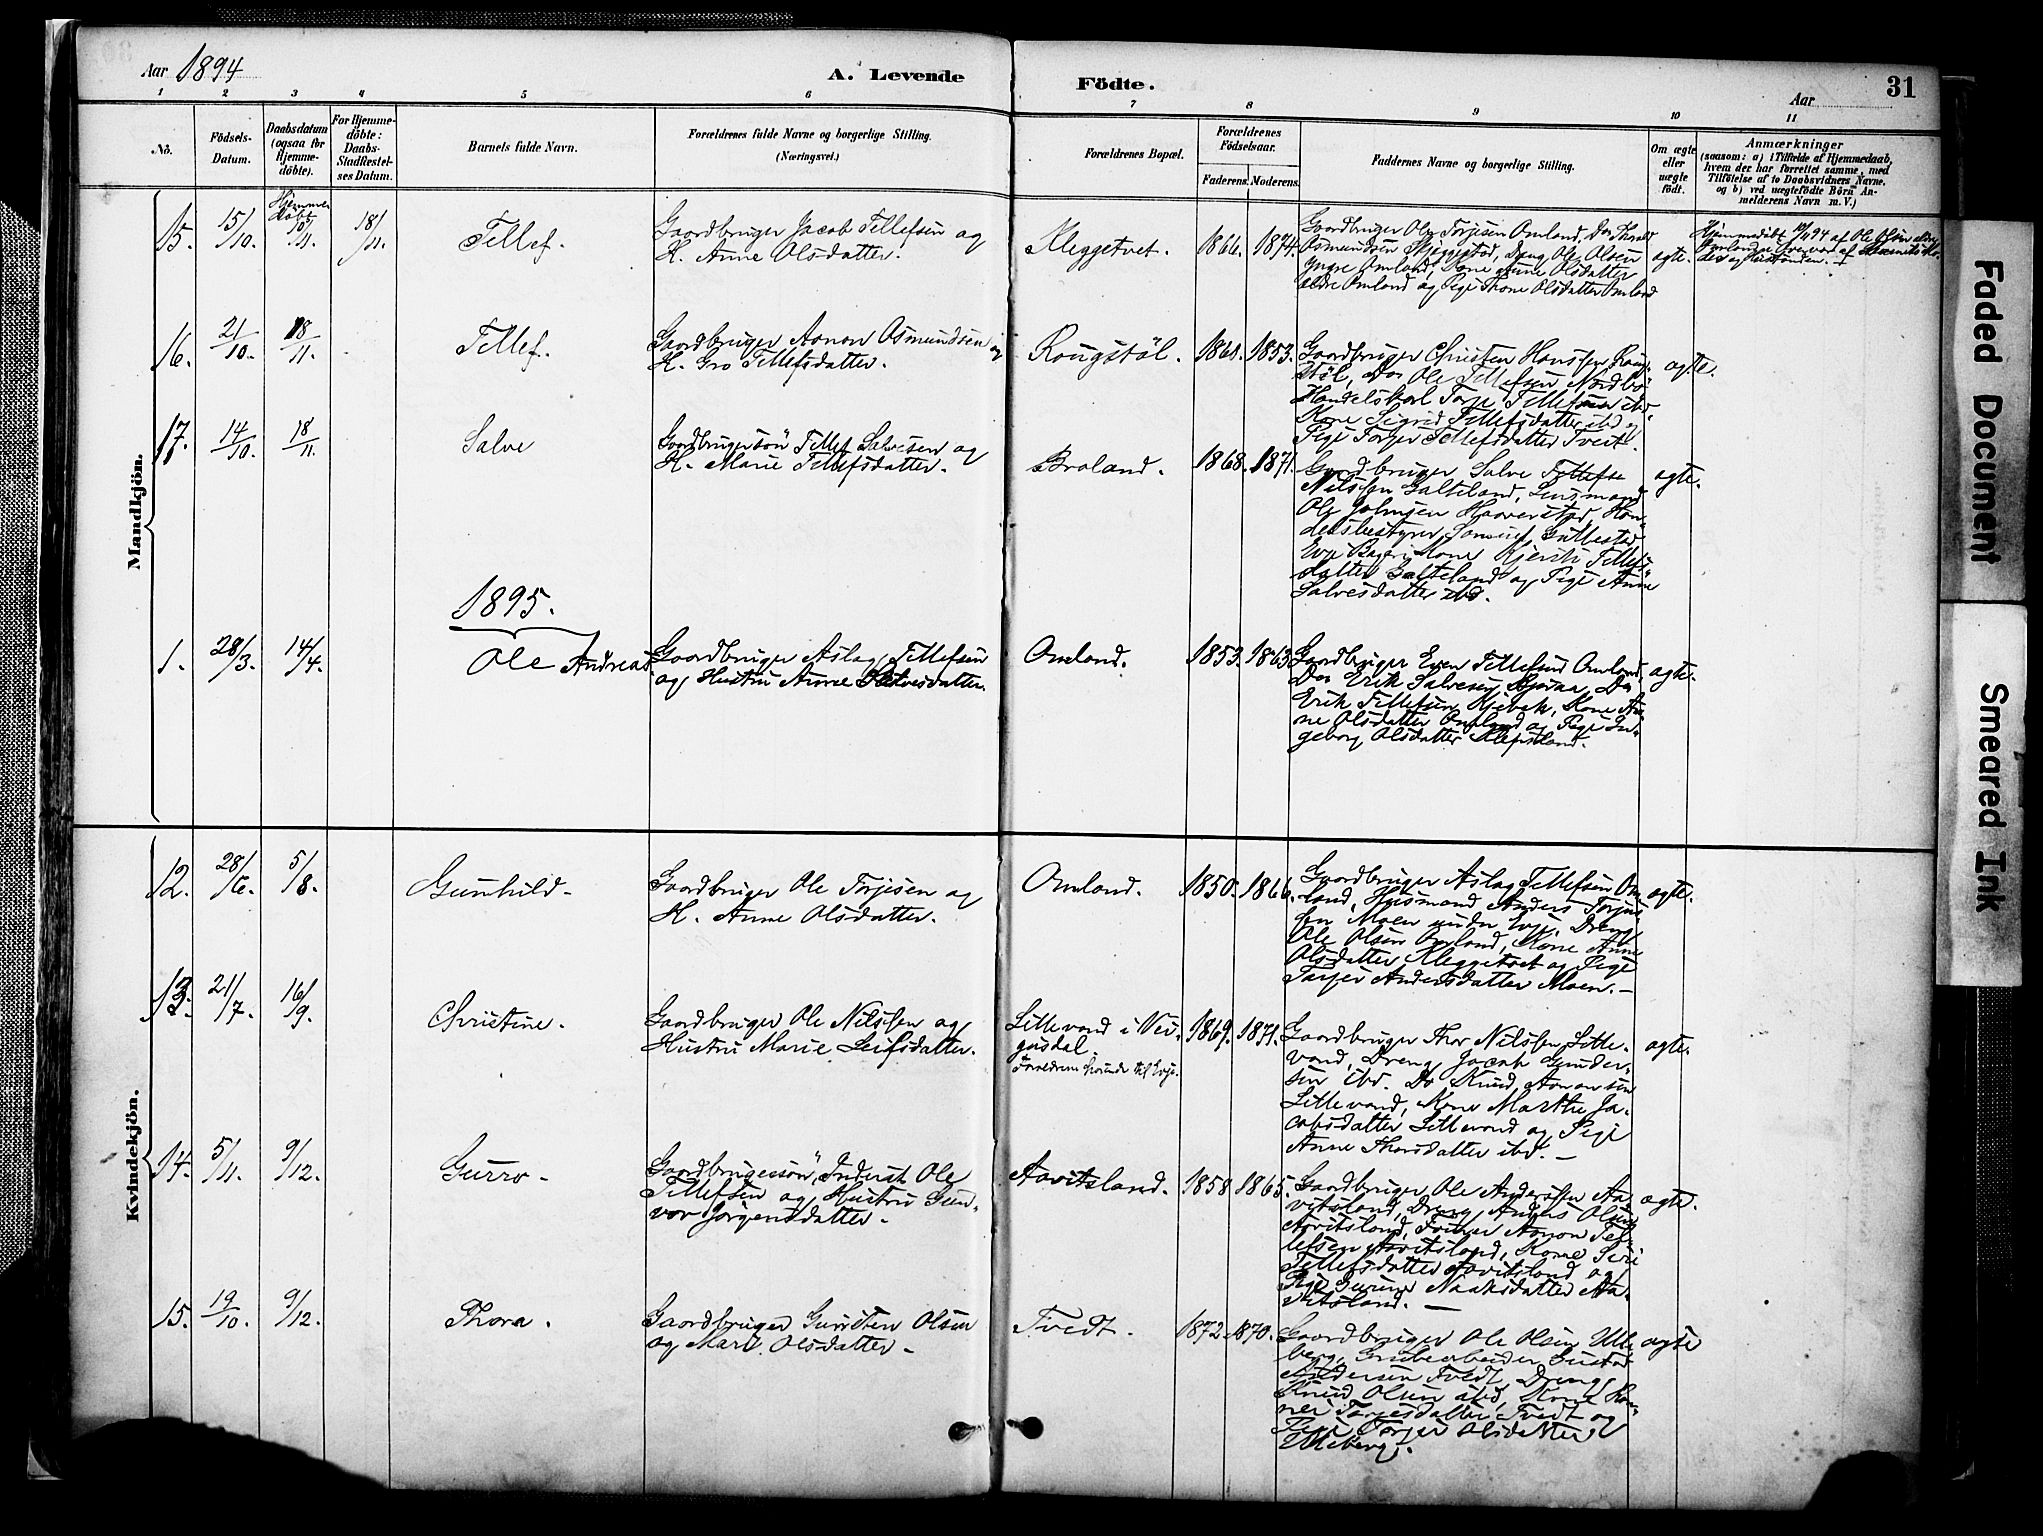 Aar 1894
A. Levende Födte.
Aar
31
1 2 3 4 5 6 7 8 9 10 11
No.
Födsels-Datum.
Daabsdatum (ogsaa for Hjemme-döbte).
For Hjemme-döbte: Daabs-Stadfæstel-ses Datum.
Barnets fulde Navn.
Forældrenes fulde Navne og borgerlige Stilling. (Næringsvei.)
Forældrenes Bopæl.
Forældrenes Födselsaar.
Faderens. Moderens.
Faddernes Navne og borgerlige Stilling.
Om ægte eller uægte födt.
Anmærkninger
(saasom: a) i Tilfælde af Hjemmedaab, hvem der har forrettet samme, med Tilföielse af to Daabsvidners Navne, og b) ved uægtefödte Börn An-melderens Navn m. V.)
Mandkjön.
15. 15/10. Hjemme döbt 10/11. 18/11. Tellef. Gaardbruger Jacob Tellefsen og
H. Anne Olsdatter.
Kleggetvet. 1866. 1874.
Gaardbruger Ole Torjesen Omland, Do Thorald
Osmundsen Skjeggestad, Dreng Ole Olsen
Yngre Omland, Kone Anne Olsdatter
Ældre Omland og Pige Thone Olsdatter Omland
ægte.
Hjemmedöbt 10/11 94 af Ole Olsen ældre
Omland
16. 21/10. 18/11. Tellef. Gaardbruger Aanon Osmundsen og
H. Gro Tellefsdatter.
Rougstöl. 1861. 1853.
Gaardbruger Christen Hanssen Roug-
stöl, Do Ole Tellefsen Nordbö
Handelskarl Torje Tellefsen ibd.
Kone Sigrid Tellefsdatter ibd og
Pige Torjer Tellefsdatter Tveit.
ægte.
17. 14/10. 18/11. Salve Gaardbrugersön Tellef Salvesen og
H. Marie Tellefsdatter.
Braland. 1868. 1871.
Gaardbruger Salve Tellefse
Nilssen Galteland, Lensmand
Ole Johnsen Haaverstad, Han-
delsbestyrer Gullestad
Evje Kone Kjersti Tellefs-
datter Galteland og Pige Anne
Salvesdatter ibd.
ægte.
1895.
1. 28/3. 14/4. Ole Andreas. Gaardbruger Aslag Tellefsen
og Hustru Anne Salvesdatter.
Omland. 1853. 1863.
Gaardbruger Even Tellefsen Omland,
Do Erik Salvesen Do
Erik Tellefsen Kjebek, Kone An-
ne Olsdatter Omland og Pige In-
geborg Olsdatter Klepsland.
ægte.
Kvindekjön.
12. 28/6. 5/8. Gunhild - Gaardbruger Ole Torjesen og
H. Anne Olsdatter.
Omland. 1850. 1866.
Gaardbruger Aslag Tellefsen Om-
land, Husmand Anders Torjus-
sen Moen under Evje, Dreng
Ole Olsen Omland, Kone Anne
Olsdatter Kleggetvet og Pige
Torjer Andersdatter Moen. -
ægte.
13. 21/7. 16/9. Christine. Gaardbruger Ole Nilssen og
Hustru Marie Leifsdatter.
Lillevand i Ve-
gusdal.
1869. 1871.
Gaardbruger Thor Nilssen Lille-
vand, Dreng Jacob Gunder-
sen ibd. Do Knud Aanonsen
Lillevand, Kone Marthe Ja-
cobsdatter Lillevand og Pige
Anne Thorsdatter ibd. -
ægte.
14. 5/11. 9/12. Gurro - Gaardbrugersön, Inderst Ole
Tellefsen og Hustru Gun-
vor Jörgensdatter -
Aavitsland. 1858 1865.
Gaardbruger Ole Anderssen Aa-
vitsland, Dreng Anders Olsen
Aavitsland, Aanon Tel-
lefsen Aavitsland, Kone Siri
Tellefsdatter Aavitsland og
Pige Gurine Aa-
vitsland. -
ægte.
15. 19/10. 9/12. Thora. Gaardbruger Gunsten Olsen
og Mari Olsdatter -
Tvedt. 1872. 1870.
Gaardbruger Ole Olsen Utle-
berg, Grubearbeider Gustav
Andersen Tvedt, Dreng
Knud Olsen Kone
Torjesdatter Tvedt og
Pige Torjer Olsdatter
Utleberg.
ægte
Faded Document
Smeared Ink